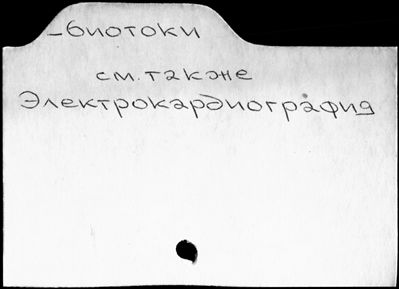 -биотоки
см. также
Электрокардиография